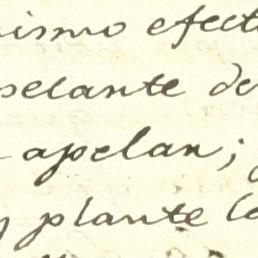 ismo efect
pelante de
apelan;
plante le